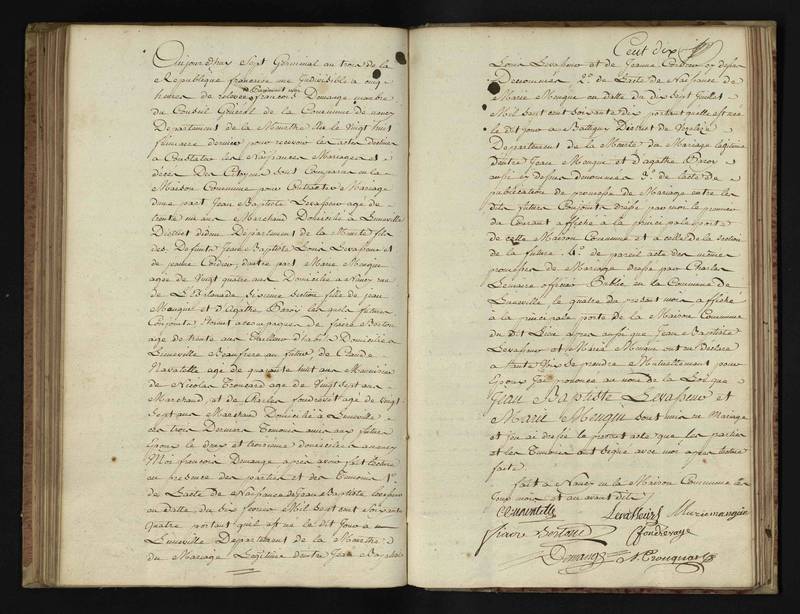 Aujourdhuy Sept Germinal an trois de la
République francaise une Indivisible a onze
heures de relevée françois Demange membre
du Conseil Général de la Commune de nancy
Departement de la Meurthe élu le vingt huit
frimaire dernier pour recevoir les actes destinés
a Constater les Naissances Mariages et
décès des Citoyens sont Comparus en la
Maison Commune pour Contracter Mariage
dune part Jean Baptiste Levasseur agé de
trente un ans Marchand Domicilié a Luneville
District didem Departement de la Meurthe fils
des Defunts Jean Baptiste Louis Levasseur et
de jeanne Cordeur, dautre part Marie Mengin
agée de Vingt quatre ans Domiciliée a Nancy rue
de L'Esplanade Sixieme Section fille de jean
Mengin et d'Agathe Baroy les quels futurs
Conjoints Etoient accompagnés de fiacre Berton
age de trente ans Tailleur d'habits Domicilié a
Luneville Beaufrere au futur, de Claude
agé de quarante huit ans
de Nicolas Troucard agé de Vingt Sept ans
Marchand, et de Charles fondrevaÿe agé de Vingt
Sept ans Marchand Domicilié à Luneville
les trois Derniers Temoins amis aux futurs
Epoux le deux et troisieme domiciliés a nancy
Moi francois Demange après avoir fait lecture
en presence des parties et des Temoins 1°.
de Lacte de Naissance de Jean Baptiste Levasseur
en datte du Six fevrier Mil Sept cent soixante
quatre portant quil est né le dit jour a
Luneville Departement de la Meurthe
du Mariage Legitime dentre Jean Baptiste
Cent dix
Louis Levasseur et de Jeanne Cordeur cy dessus
Denommés 2°. de Lacte de Naissance de
Marie Mengin en datte du dix sept Juillet
Mil Sept cent Soixante dix portant quelle est née
le dit jour a Battigny District de Vezelize
Departement de la Meurthe du Mariage légitime
dentre Jean Mengin et d'agathe Baroy
aussi cy dessus denommés 3°. de lacte de
publication de promesse de Mariage entre les
dits futurs Conjoints dressé par moi le premier
du Courant affiché a la principale porte
de cette Maison Commune et a celle de la Section
de la future, 4°. de pareil acte des mêmes
promesses de Mariage dressé par Charles
Lemaire officier Public en la Commune de
Luneville le quatre du present mois affiché
à la principale porte de la Maison Commune
du Dit Lieu après aussi que Jean Baptiste
Levasseur et Marie Mengin ont eu Declaré
a haute Voix de prendre Mutuellement pour
Epoux Jai prononcé au nom de la Loi que
Jean Baptiste Levasseur et
Marie Mengin sont unis en Mariage
et Jen ai dressé le present acte que les parties
et les Temoins ont Signé avec moi apres lecture
faite.
fait à Nancy en la Maison Commune les
jour mois et an avant dits
Levasseur Marie mangin
fiacre Bertons Cfondrevaye
Demange N. Trouquart